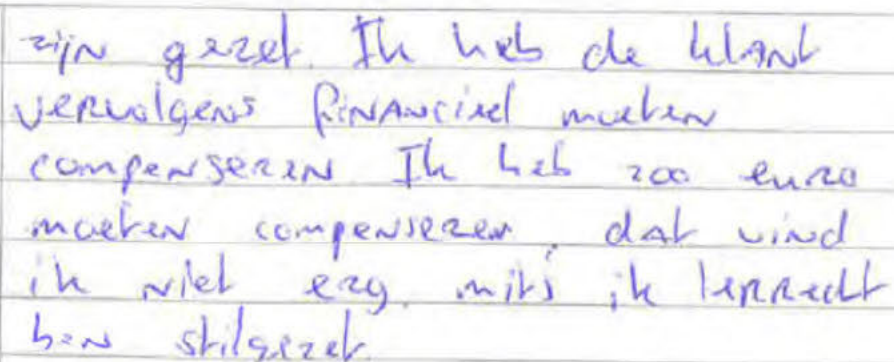 zijn gezet. Ik heb de klant
vervolgens financieel moeten
compenseren Ik heb 200 euro
moeten compenseren, dat vind
ik niet erg, mits ik terrecht
ben stilgezet